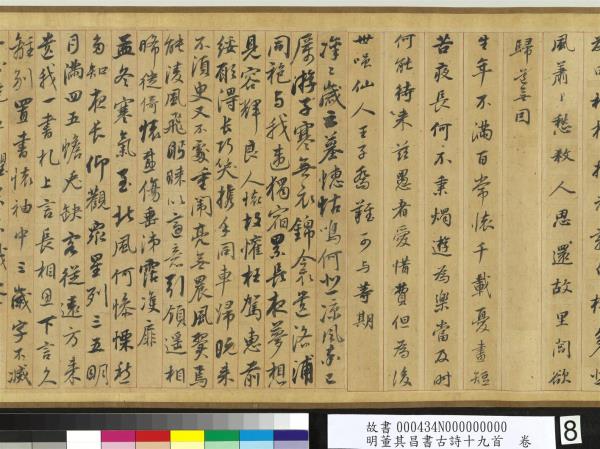 風蕭〻愁殺人思還故里閭欲
歸無因
生年不滿百常懷千載憂晝短
苦夜長何不秉燭遊為樂當及時
何能待來茲愚者愛惜費但為後
世嗤仙人王子喬難可与等期
凜〻歲云暮螻蛄鳴何悲涼風率已
厲游子寒無衣錦衾遺洛浦
同袍与我違獨宿累長夜夢想
見容輝良人惟故懽枉駕惠前
綏願得長巧笑攜手同車歸既來
不須臾又不處重闈亮無晨風翼焉
能凌風飛眄睞以適意引領遙相
睎徙倚懷感傷垂涕霑雙扉
孟冬寒氣至北風何慘慄愁
多知夜長仰觀眾星列三五明
月滿四五蟾兔缺客從遠方來
遺我一書札上言長相思下言久
離別置書懷袖中三歲字不滅
故書 000434N000000000
明董其昌書古詩十九首 卷
8